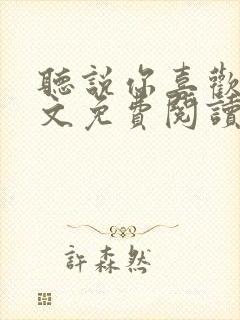 聽說你喜歡
文免費閱讀
許森然